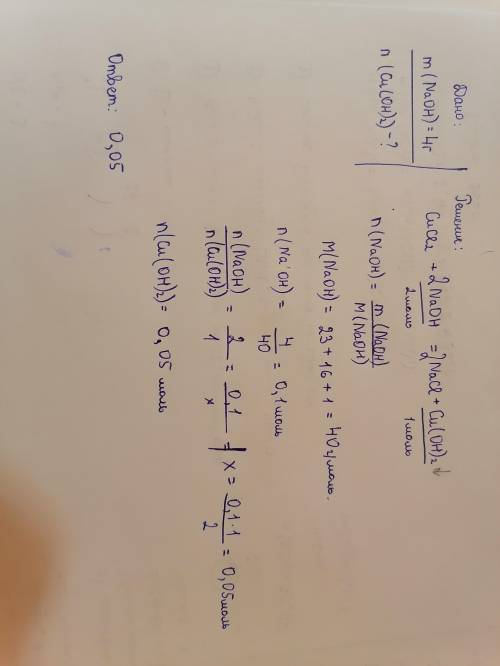 Дано:
m(NaOH)=4г
n(Cu(OH)₂)-?
Решение:
CuCl₂ + 2NaOH = 2NaCl + Cu(OH)₂↓
2моль 1моль
n(NaOH) = m(NaOH)/M(NaOH)
M(NaOH) = 23+16+1=40г/моль.
n(NaOH) = 4/40 = 0,1моль
n(NaOH)/n(Cu(OH)₂) = 2/1 = 0,1/x = | x = 0,1·1/2 = 0,05моль
n(Cu(OH)₂)= 0,05 моль
Ответ: 0,05